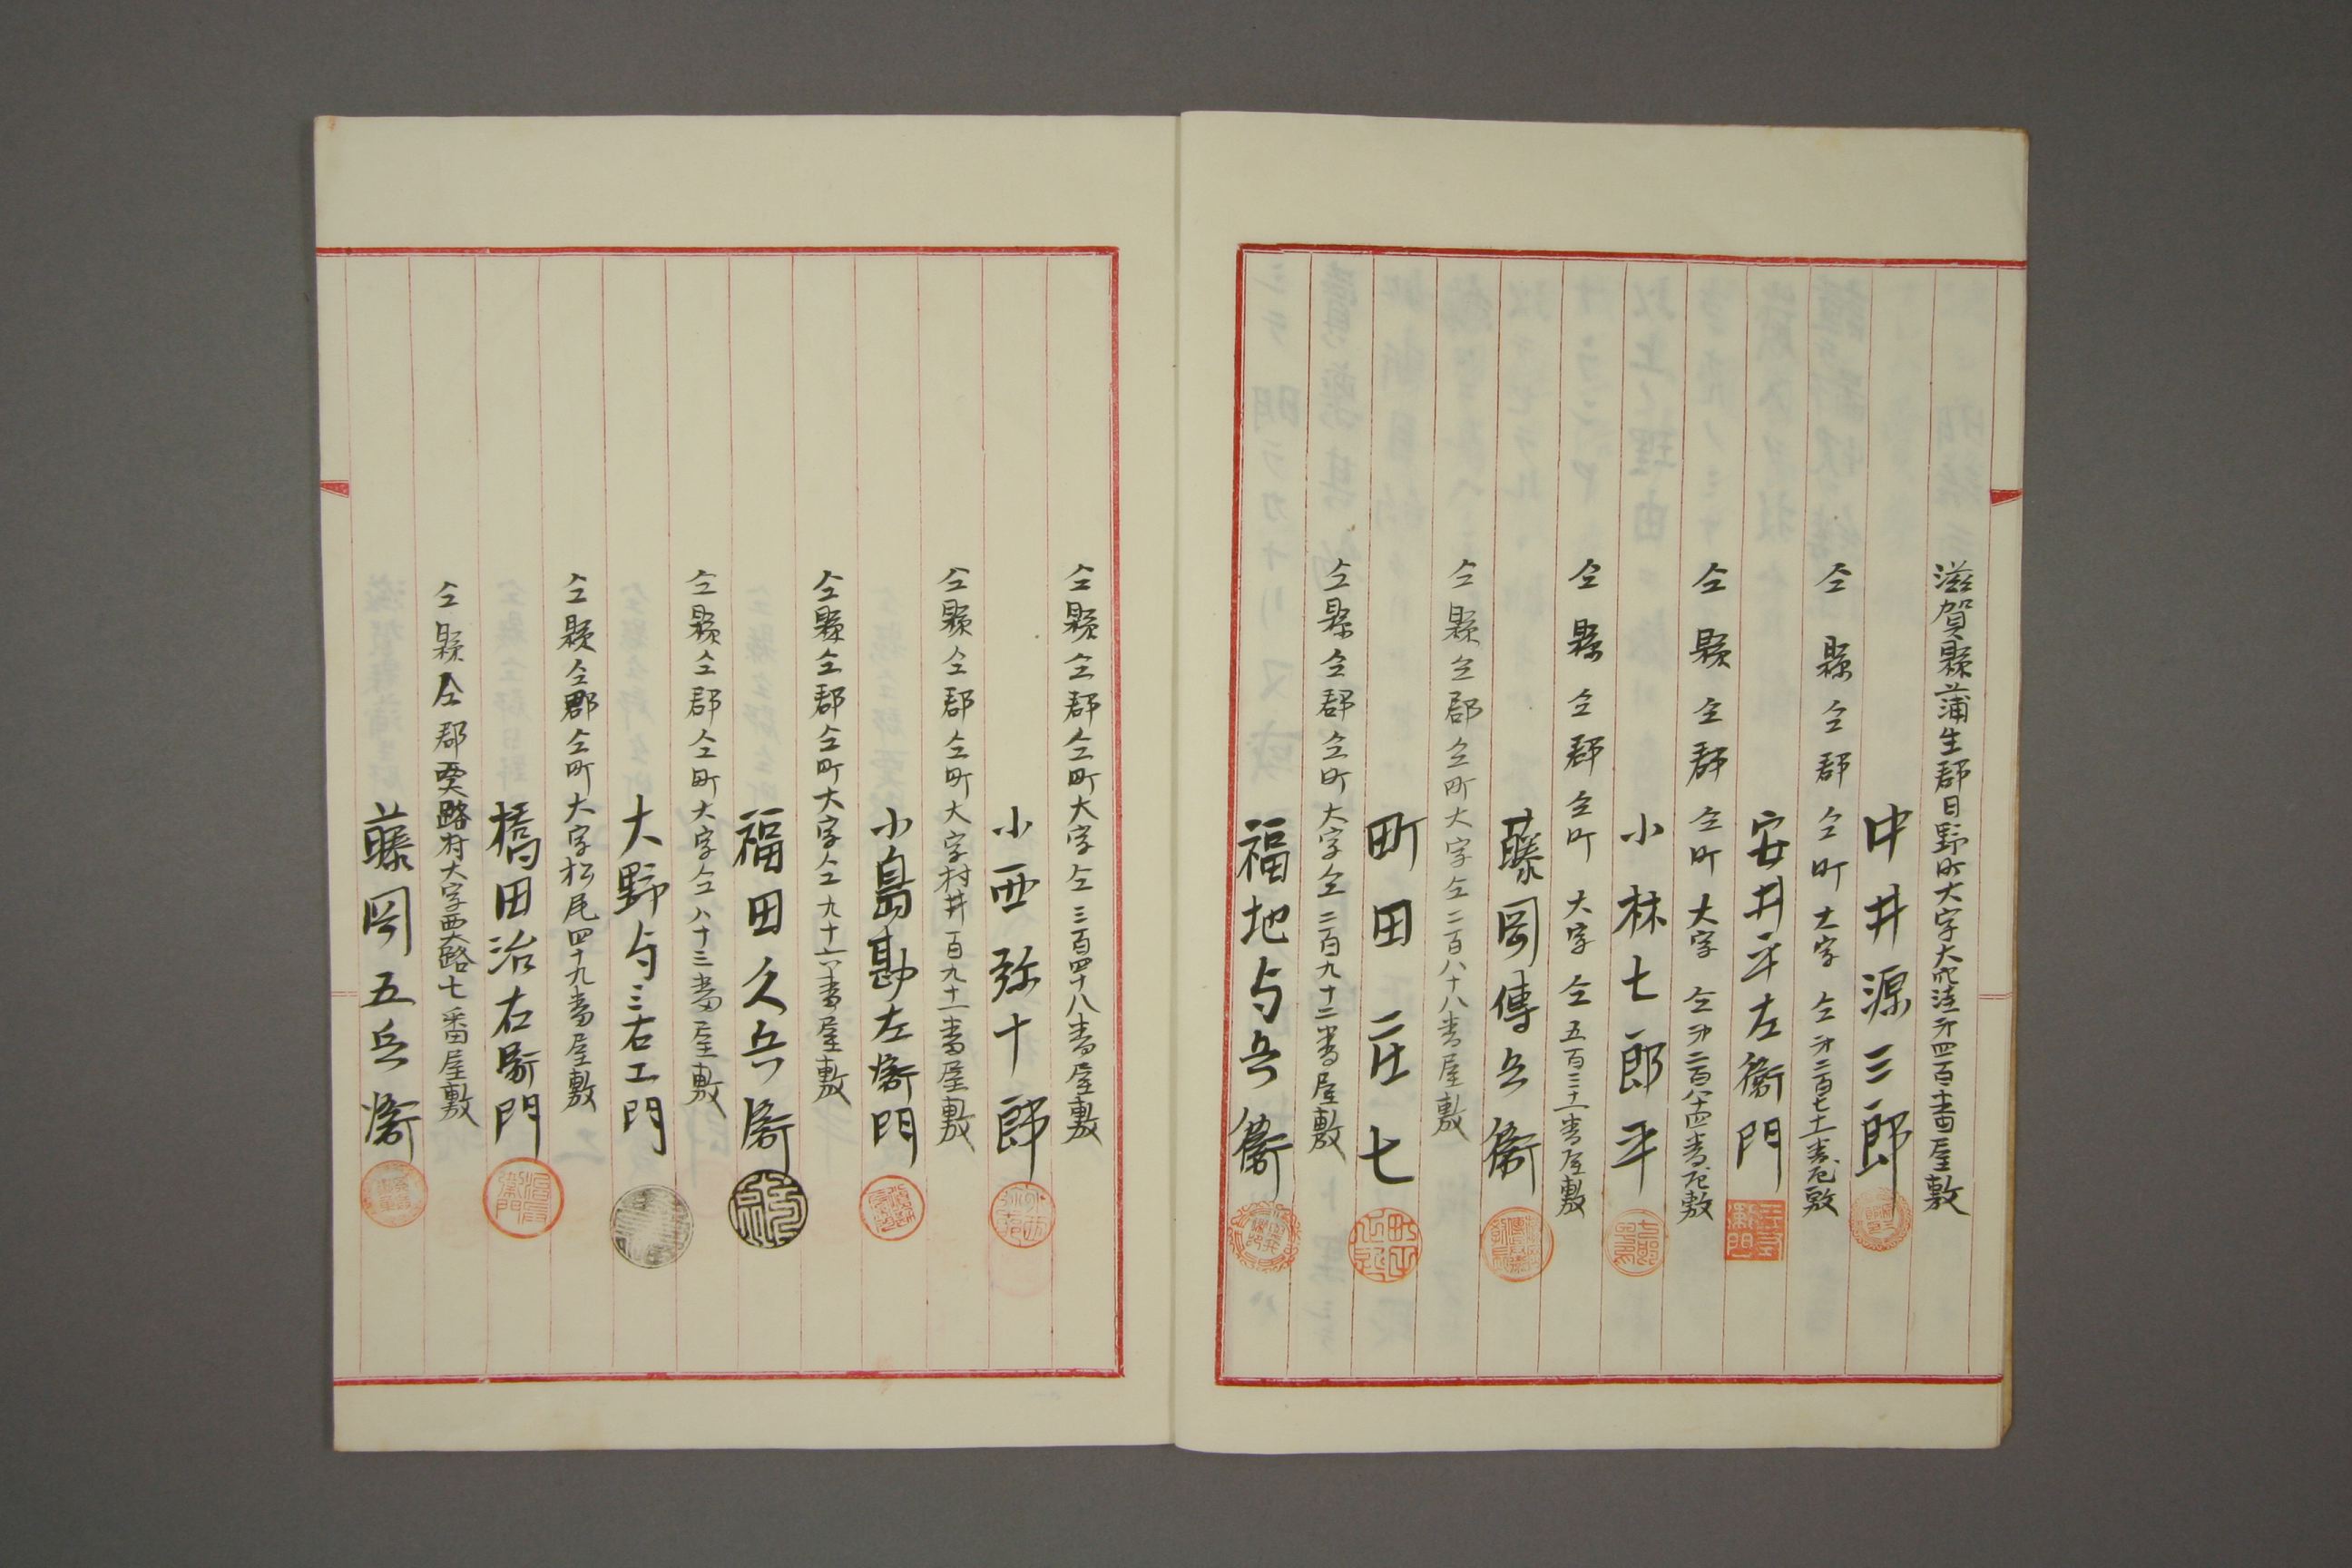 滋賀縣蒲生郡日野町大字大窪第四百十番屋敷
中井源三郎
仝縣仝郡仝町大字仝第二百七十一番屋敷
安井平左衞門
仝縣仝郡仝町大字仝第二百八十四番屋敷
小林七郎平
仝縣仝郡仝町大字仝五百三十一番屋敷
藤岡傳兵衞
仝縣仝郡仝町大字仝二百八十八番屋敷
町田庄七
仝縣仝郡仝町大字仝二百九十二番屋敷
福地与兵衞
仝縣仝郡仝町大字仝三百四十八番屋敷
小西弥十郎
仝縣仝郡仝町大字村井百九十一番屋敷
小島勘左衞門
仝縣仝郡仝町大字仝九十六番屋敷
福田久兵衞
仝縣仝郡仝町大字仝八十三番屋敷
大野与三右エ門
仝縣仝郡仝町大字松尾四十九番屋敷
橋田治右衞門
仝縣仝郡西大路村大字西大路七番屋敷
藤岡五兵衞